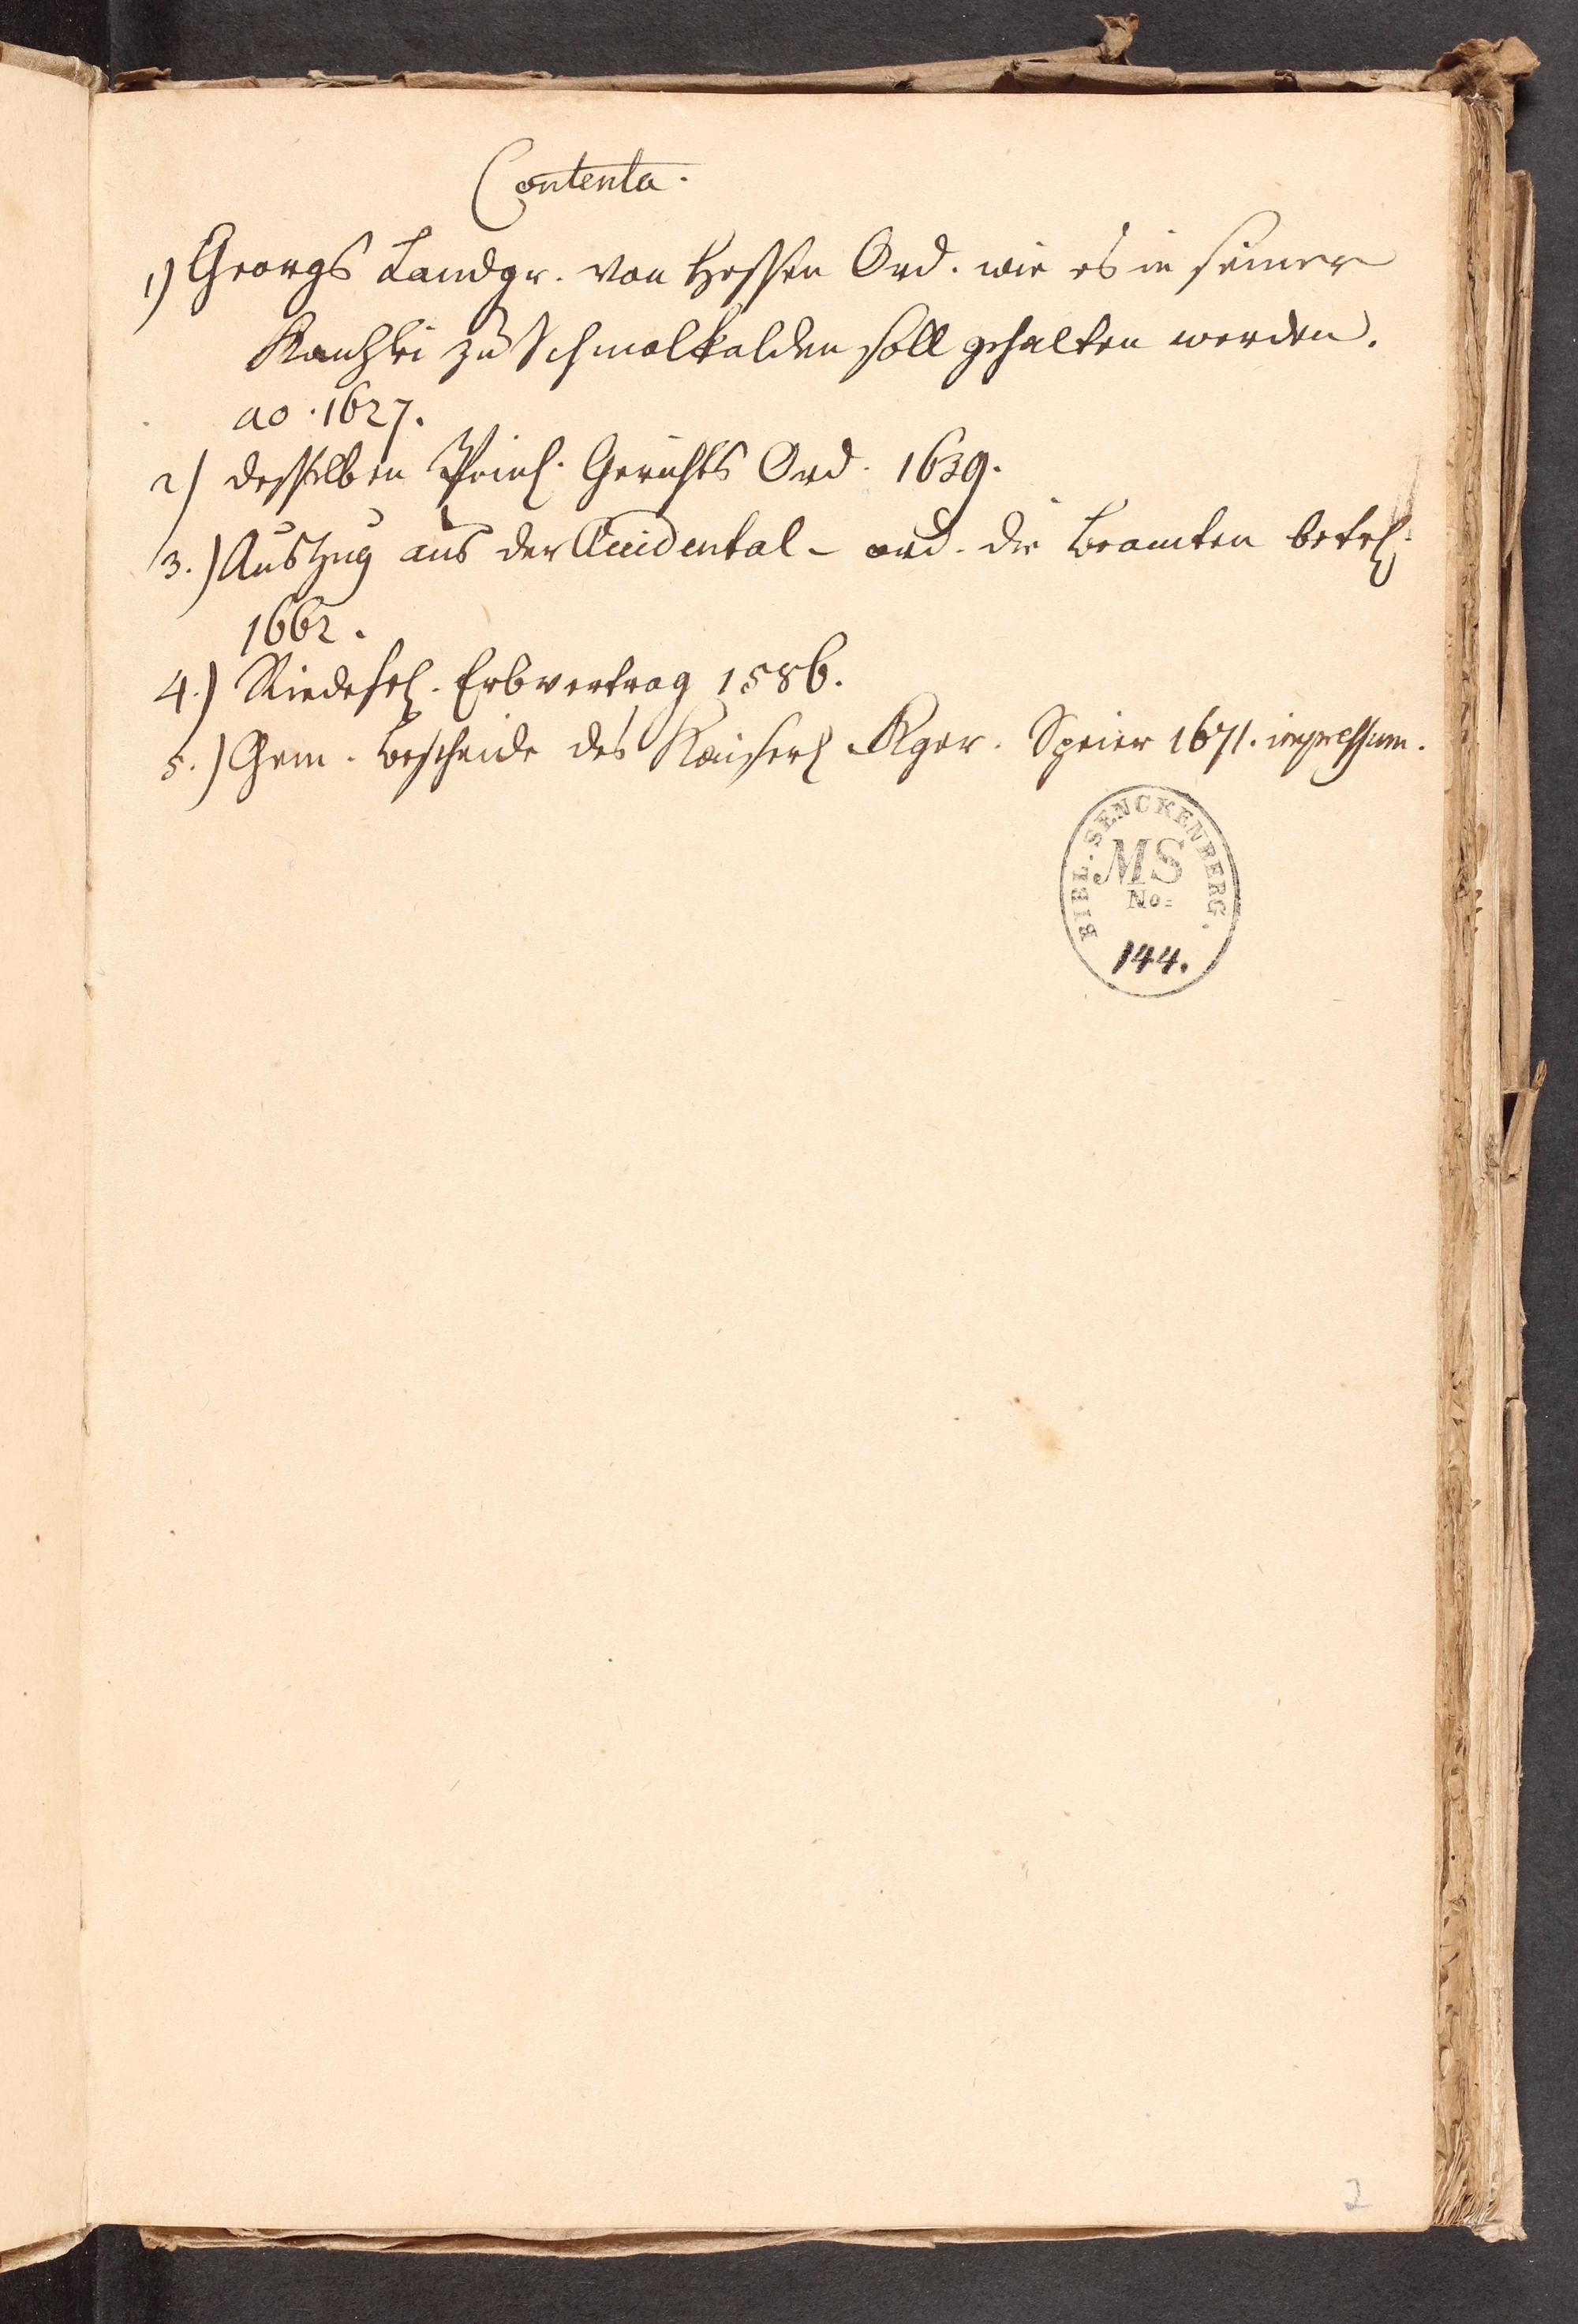 Contenta.
1) Georgs Landgr. von Hessen Ord. wie es in seiner
Kanzlei zu Schmalkalden soll gehalten werden.
ao. 1627.
2) desselben Peinl. Gerichts Ord. 1639.
3.) Auszug aus der Accidental- ord. die Beamten betrf.
1662.
4.) Riedesel. Erbvertrag 1586.
5.) Gem. Bescheide des Kaiserl Kger. Speier 1671. impressum.
BIBL. SENCKENBERG.
MS
No=
144.
2